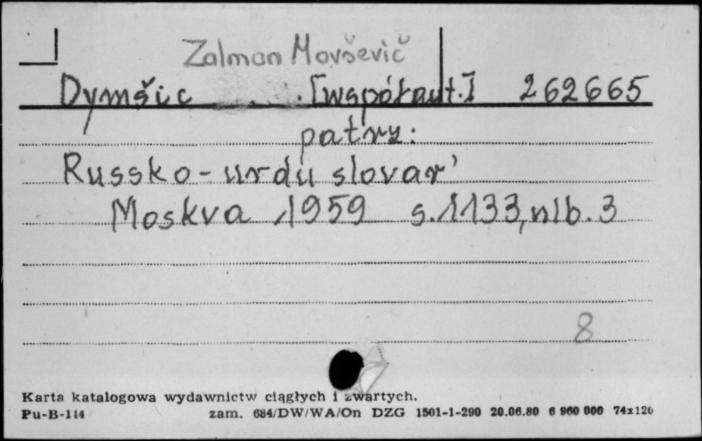 Zalman Movševič
Dymšic . . . [współaut.] 262665
patrz:
Russko-urdu slovar'
Moskva, 1959 s. 1133, nlb. 3
8
Karta katalogowa wydawnictw ciągłych i zwartych.
Pu-B-114 zam. 684/DW/WA/On DZG 1501-1-290 20.06.80 6 960 000 74x120